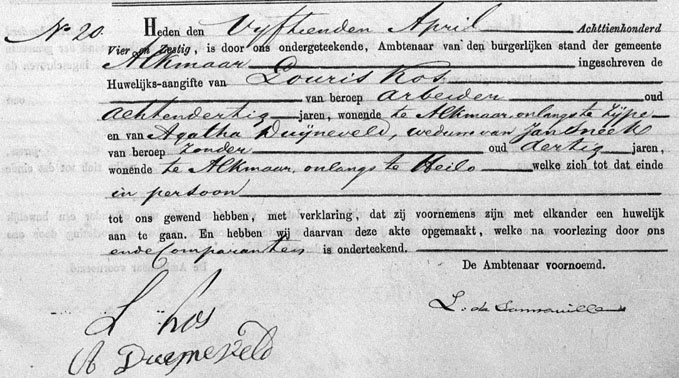 No 20. Heden den Vijftienden April Achttienhonderd
Vier en Zestig, is door ons ondergeteekende, Ambtenaar van den burgerlijken stand der gemeente
Alkmaar ingeschreven de
Huwelijks-aangifte van Louris Kos
van beroep arbeider oud
achtendertig jaren, wonende te Alkmaar, onlangs te Zijpe
en van Agatha Duijneveld, weduwe van Jan Sneek
van beroep zonder oud dertig jaren,
wonende te Alkmaar, onlangs te Heilo welke zich tot dat einde
in persoon
tot ons gewend hebben, met verklaring, dat zij voornemens zijn met elkander een huwelijk
aan te gaan. En hebben wij daarvan deze akte opgemaakt, welke na voorlezing door ons
en de Comparanten is onderteekend.
De Ambtenaar voornoemd.
L. Kos
A Duijneveld